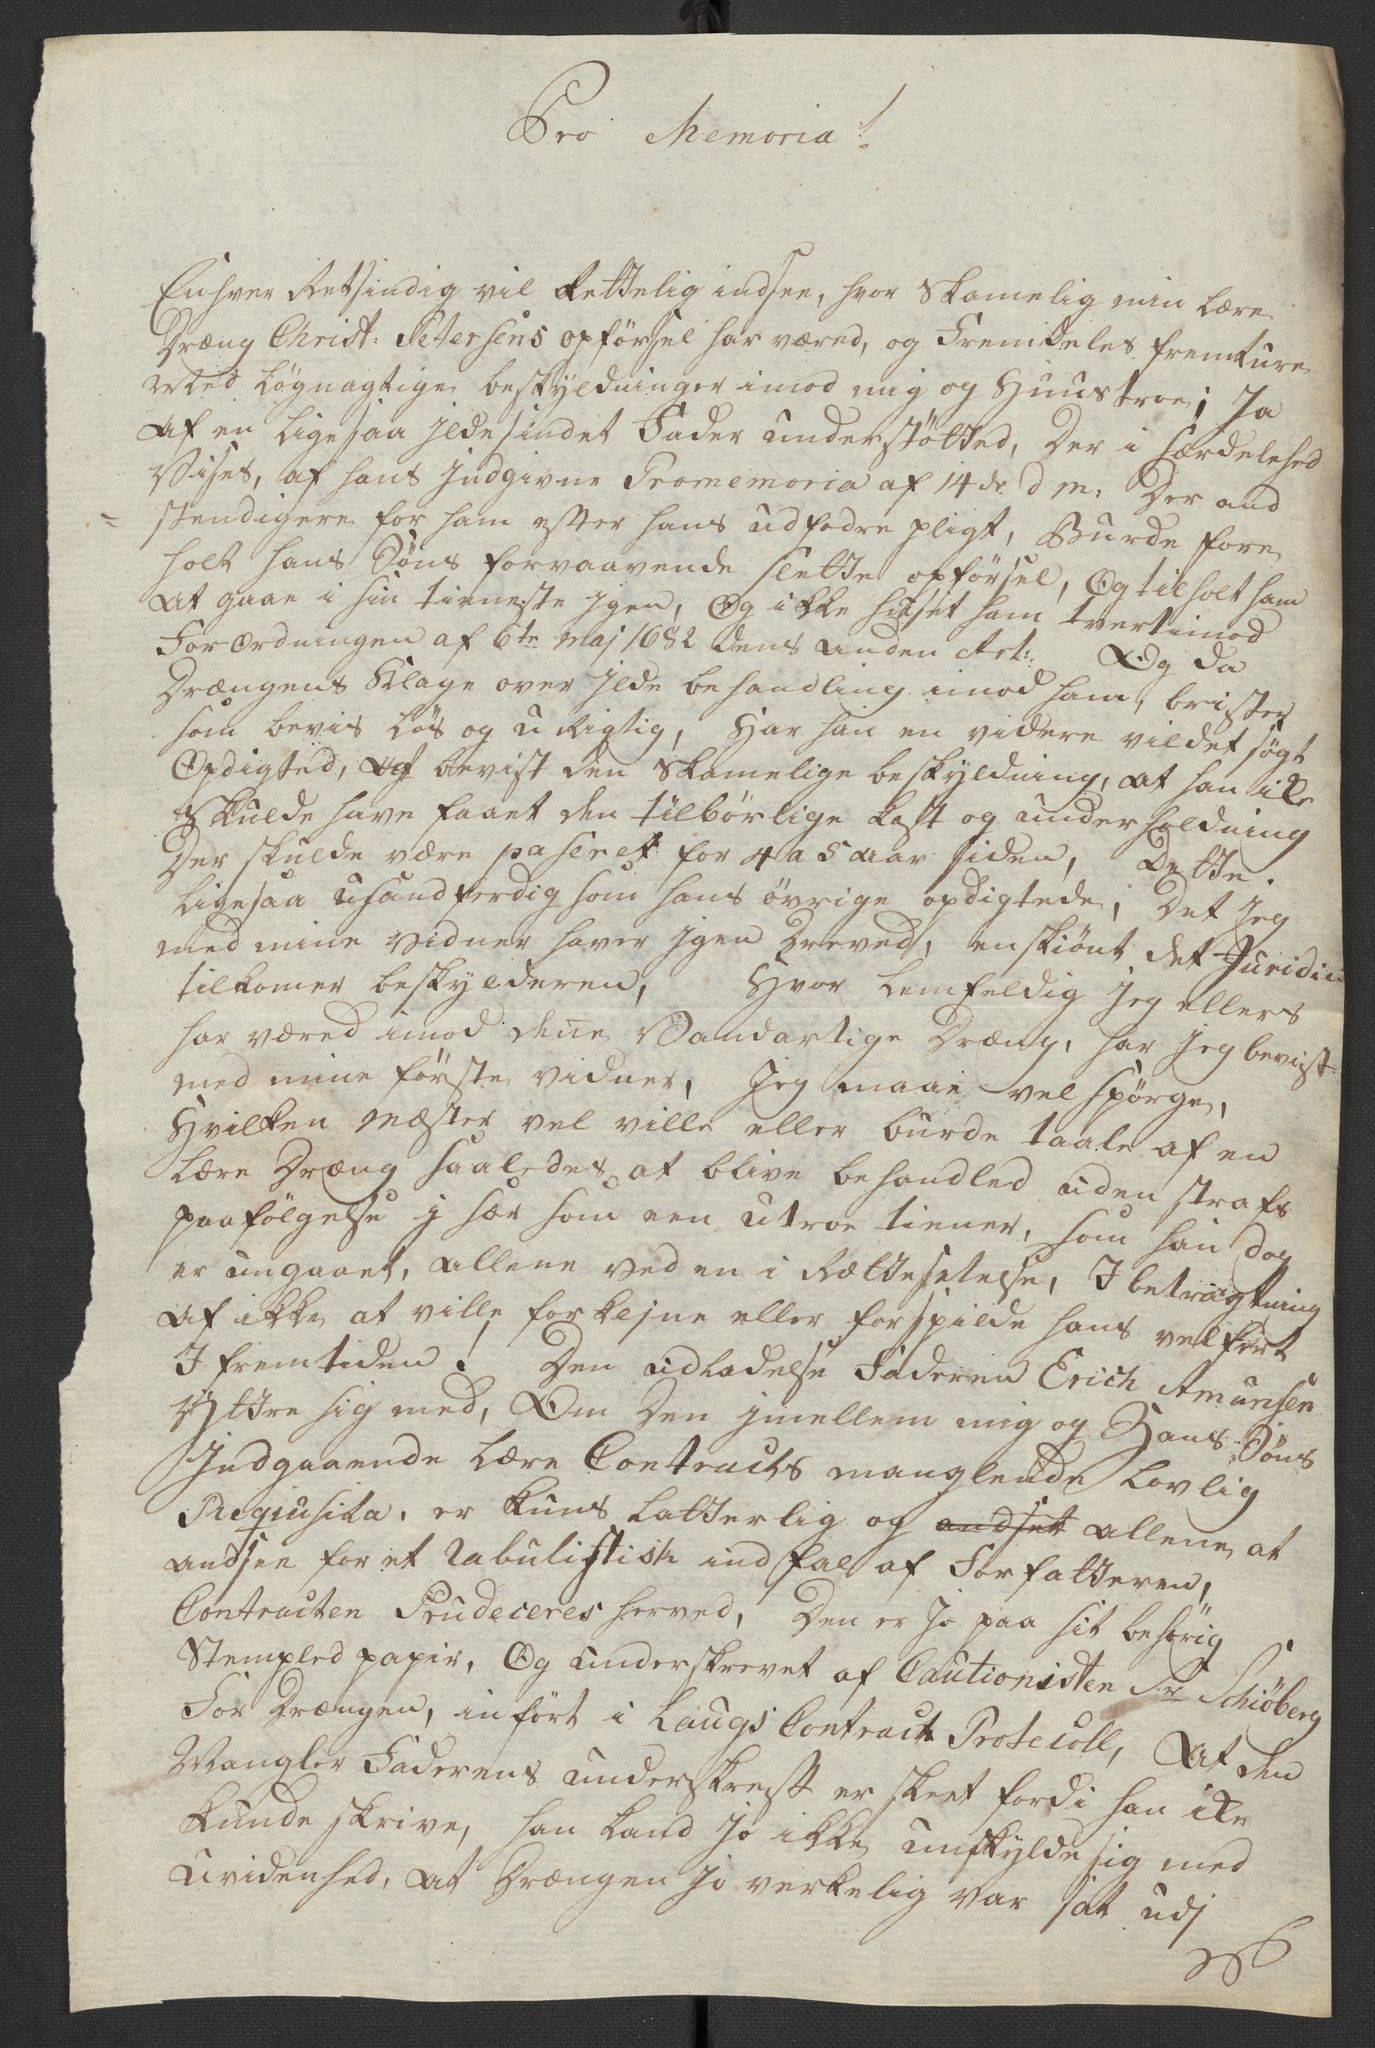 Pro Memoria!
Enhver Retsindig vil Rettelig indsee, hvor Skamelig min Lære
Dræng Christ: Petersens opførsel har wæred, og Fremdeles fremture
Med Løgnagtige beskyldninger imod mig og Huustroe; Ja
af en ligesaa ildesindet Fader understøtted, Der i særdelehed
Vises, af hans Indgivne Promemoria af 14de d m: Der and
= stendigere for ham efter hans udfodre pligt, Burde fore
holt hans Søns forvaavende slette opførsel, Og tilholt ham
at gaae i sin tieneste igen, Og ikke huset ham tvertimod
Forordningen af 6te maj 1682 dens anden Art: Og da
Drængens Klage over ilde behandling imod ham, brister
som bevis løs og u Rigtig, Har han en videre villet søgt
Opdigted, og bevist den Skamelige beskyldning, at han ikke
Skulde have faaet den tilbørlige Kost og underholdning
Der skulde være paseret for 4 a 5 aar siden, Dette
ligesaa usandferdig som hans øvrige opdigtede, Det Jeg
med mine Vidner haver igen Dreved, enskiønt det Juridice
tilkomer beskylderen, Hvor Lemfeldig Jeg ellers
har wæred imod dene Vanartige Dræng, har Jeg bevist
med mine første vidner, Jeg maae vel spørge,
Hvilken Mæster vel ville eller burde taale af en
Lære Dræng saaledes at blive behandled uden strafs
paafølgelse i sær som een utroe tiener, som han dog
er ungaaet, allene ved en i Rættesetelse, I betragtning
af ikke at ville forklejne eller forspilde hans velfert
I fremtiden! Den udladelse Faderen Erich Amunsen
Yttre sig med, Om Den imellem mig og Hans Søns
Indgaaende Lære Contracts manglende Lovlig
Reqiusita, er kuns Latterlig og andset allene at
andsee for et Rabulistisk indfal af Forfatteren,
Contracten Prudeceres herved, Den er Jo paa sit behørig
Stempled papir, Og underskrevet af Cautionisten Sr Schiøberg
For Drængen, inført i Laugs Contract Protecoll, At den
Mangler Faderens underskreft er skeet fordi han ikke
kunde skrive, han kand Jo ikke unskylde sig med
uvidenhed, at Drængen Jo verkelig var sat udj